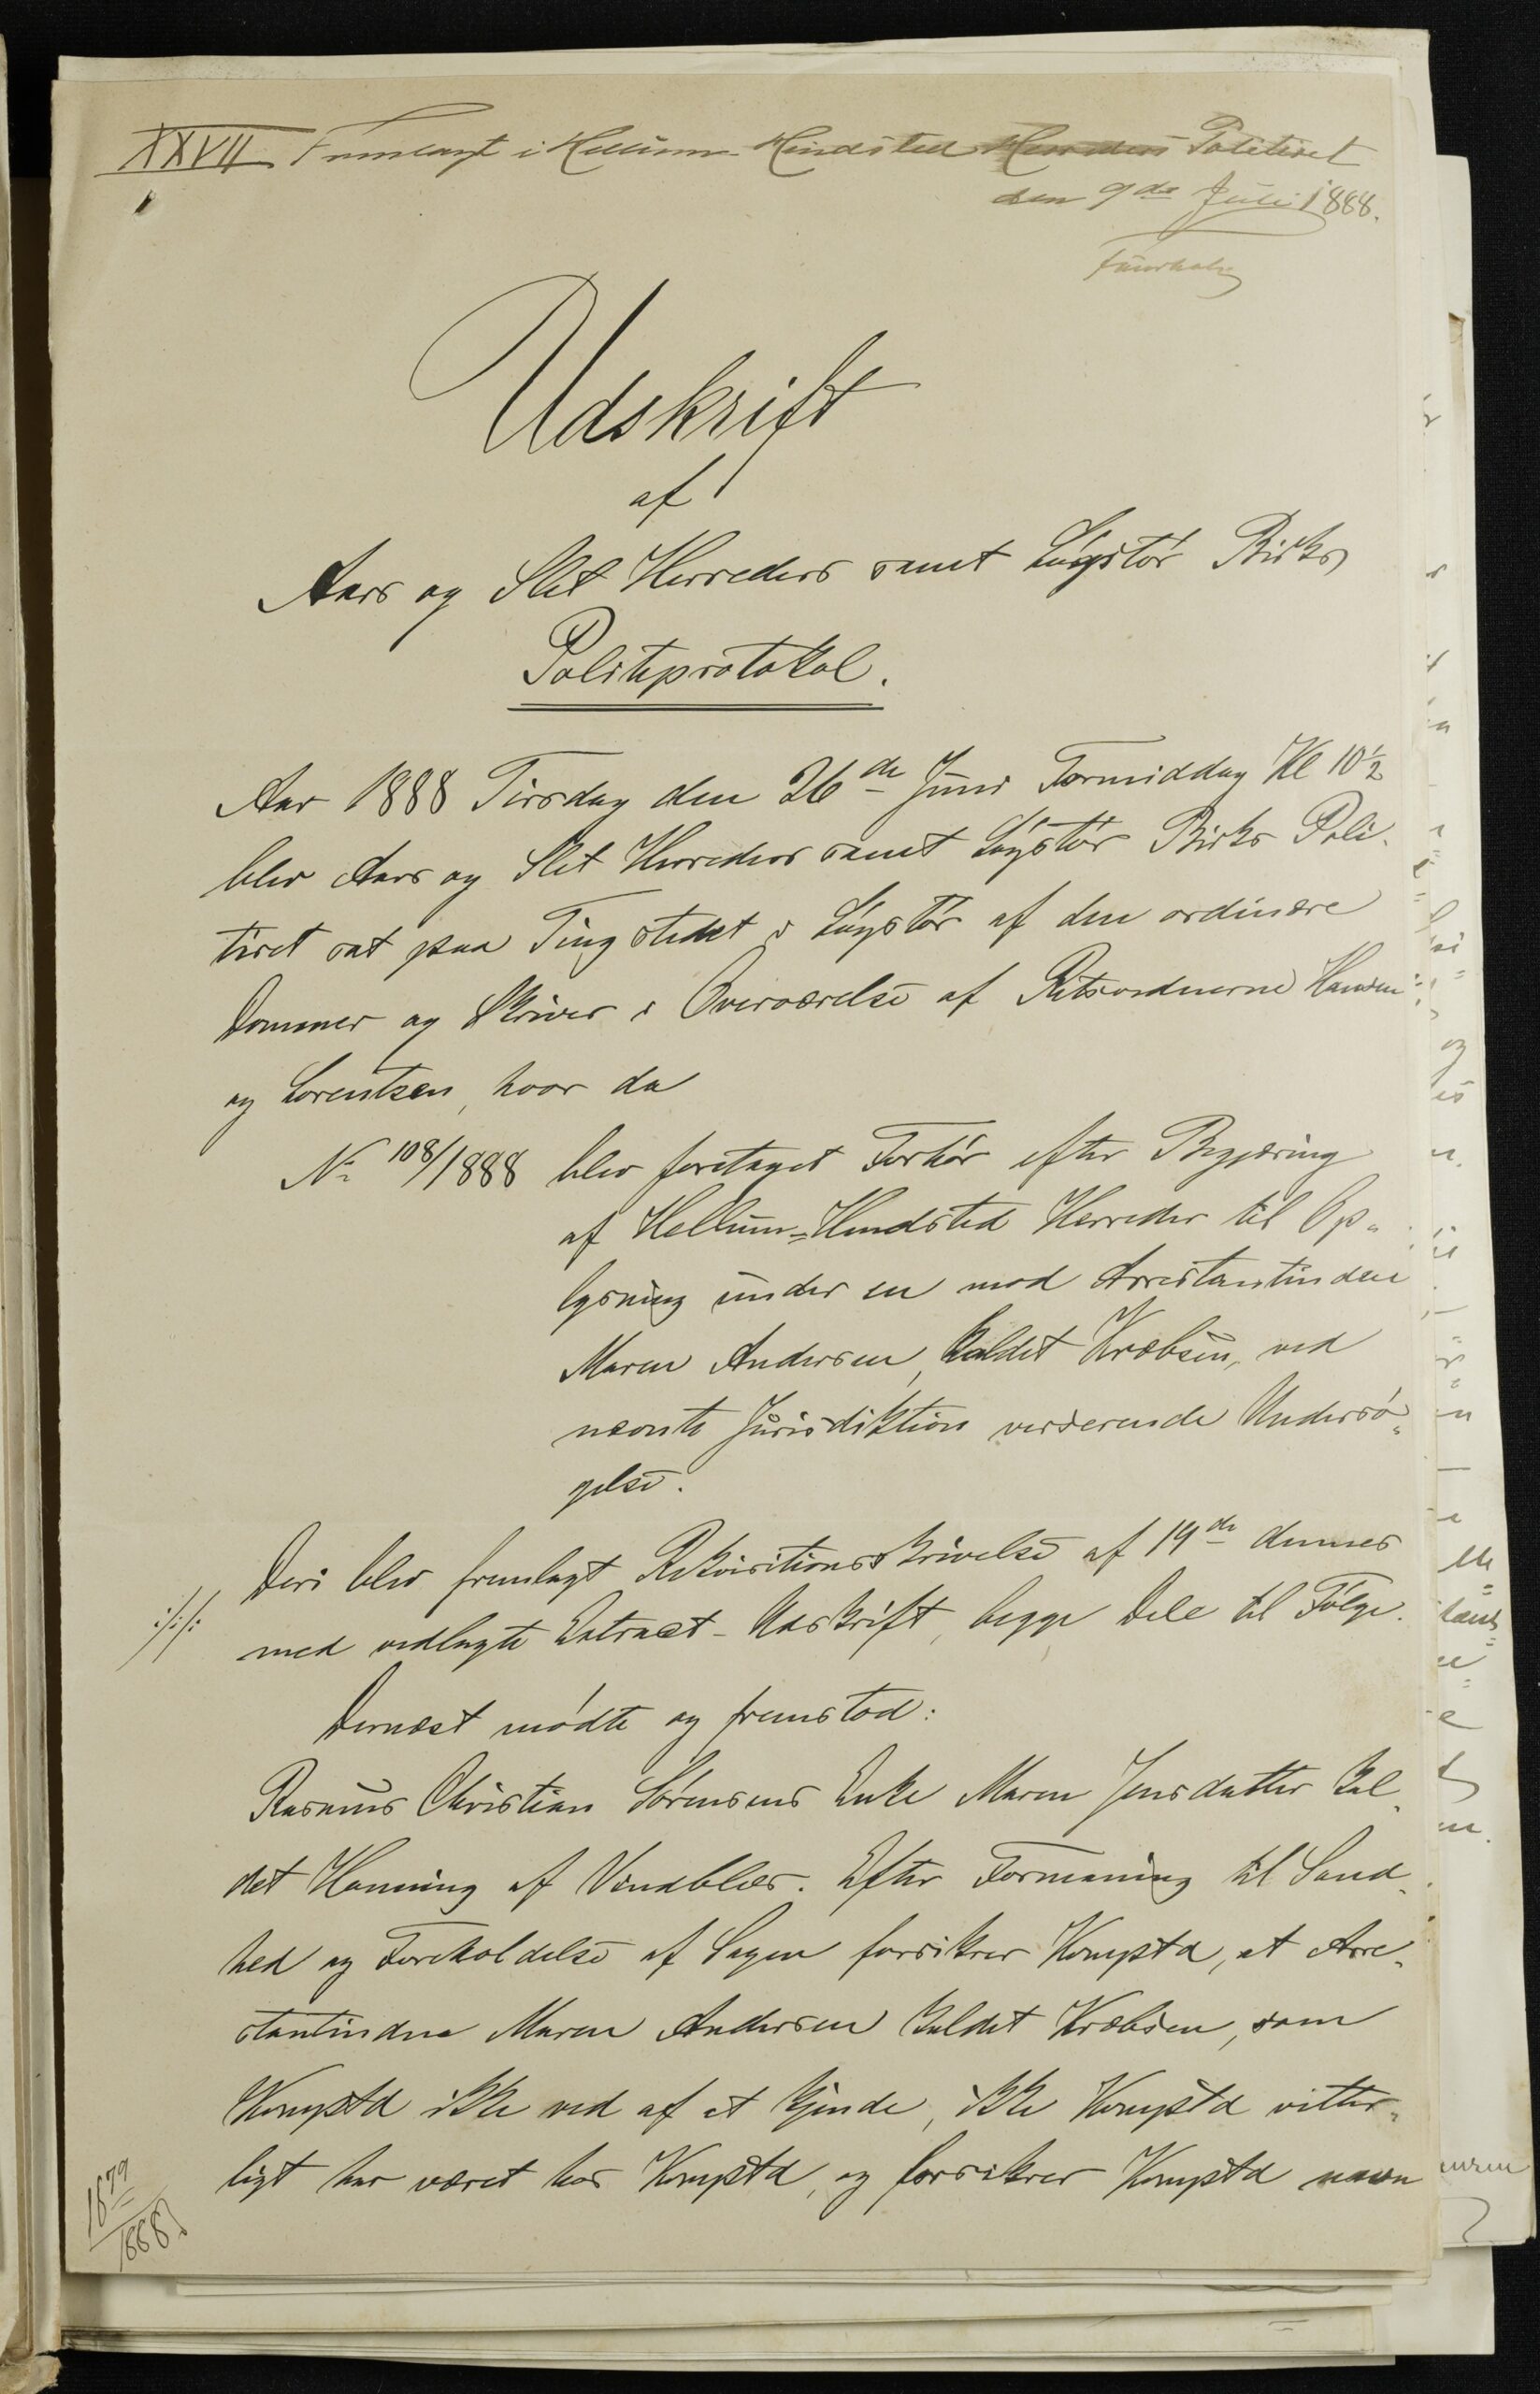 XXVII Fremlagt i Hellum Hindsted Herreders Politiret
den 9de Juli 1888.
Udskrift
af
Aars og Slet Herreders samt Løgstør Birks
Politiprotokol.
Aar 1888 Tirsdag den 26de Juni Formiddag Kl 10½
blev Aars og Slet Herreders samt Løgstør Birks Poli-
tiret sat paa Tingstedet i Løgstør af den ordinære
Dommer og Skriver i Overværelse af Retsvidnerne Hansen
og Lorentzen, hvor da
No 108/1888 blev foretaget Forhør efter Begjæring
af Hellum-Hindsted Herreder til Op-
lysning under en mod Arrestantinden
Maren Andersen, kaldet Kræbsen, ved
nævnte Jurisdiktion verserende Undersø-
gelse.
Deri blev fremlagt Rekvisitionsskrivelse af 19de dennes
:/:/: med vedlagte Extract-Udskrift, begge Dele til Følge.
Dernæst mødte og fremstod:
Rasmus Christian Sørensens Enke Maren Jensdatter kal-
det Honning af Vindblæs. Efter Formaning til Sand-
hed og Foreholdelse af Sagen forsikrer Kompta, at Arre-
stantinden Maren Andersen kaldet Kræbsen, som
Kompta ikke ved af at kjende, ikke Kompta vitter-
ligt har været hos Kompta, og forsikrer Kompta navn
1879
1888